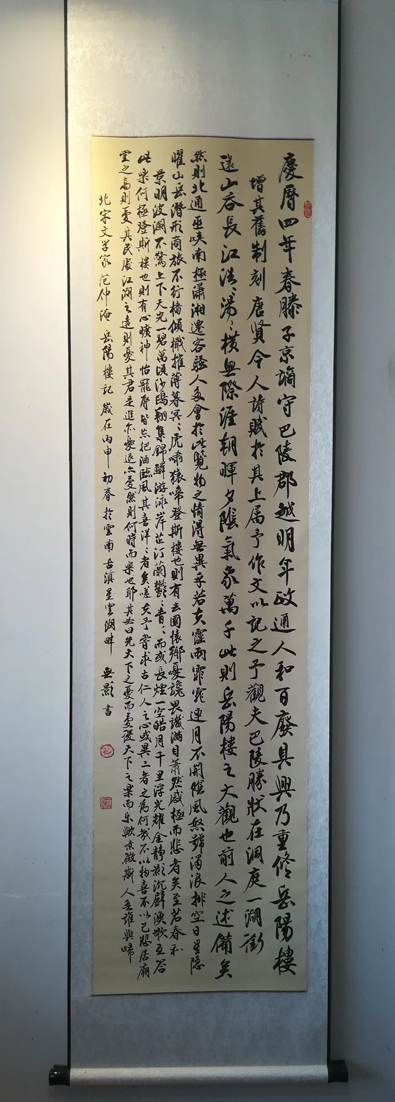 慶曆四年春滕子京謫守巴陵郡越明年政通人和百廢具興乃重修岳陽樓
增其舊制刻唐賢今人詩賦於其上屬予作文以記之予觀夫巴陵勝狀在洞庭一湖銜
遠山吞長江浩浩湯湯橫無際涯朝暉夕陰氣象萬千此則岳陽樓之大觀也前人之述備矣
然則北通巫峽南極瀟湘遷客騷人多會於此覽物之情得無異乎若夫霪雨霏霏連月不開陰風怒號濁浪排空日星隱
曜山岳潛形商旅不行檣傾楫摧薄暮冥冥虎嘯猿啼登斯樓也則有去國懷鄉憂讒畏譏滿目蕭然感極而悲者矣至若春和
景明波瀾不驚上下天光一碧萬頃沙鷗翔集錦鱗游泳岸芷汀蘭鬱鬱青青而或長煙一空皓月千里浮光耀金靜影沉璧漁歌互答
此樂何極登斯樓也則有心曠神怡寵辱皆忘把酒臨風其喜洋洋者矣嗟夫予嘗求古仁人之心或異二者之為何哉不以物喜不以己悲居廟
堂之高則憂其民處江湖之遠則憂其君是進亦憂退亦憂然則何時而樂也耶其必曰先天下之憂而憂後天下之樂而樂歟微斯人吾誰與歸
北宋文學家范仲淹岳陽樓記歲在丙申初春於雲南古滇星雲湖畔 無影書